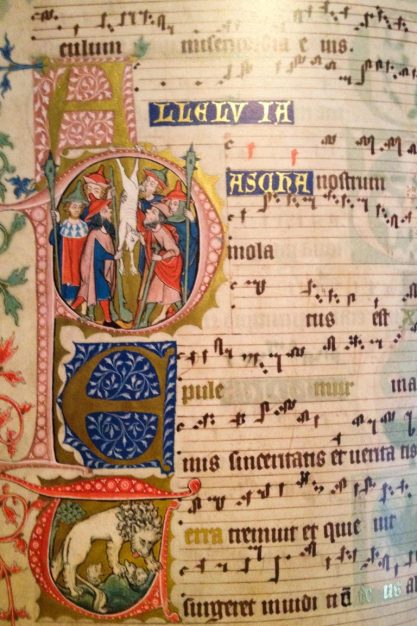 culum misericordia e ius.
A LLELV IA
P ASCHA nostrum
mola
tus est X
E pule mur in a
imis sinceritatis et verita tis
T erra tremuit et quie uit
surgeret in iudi ciō de us al